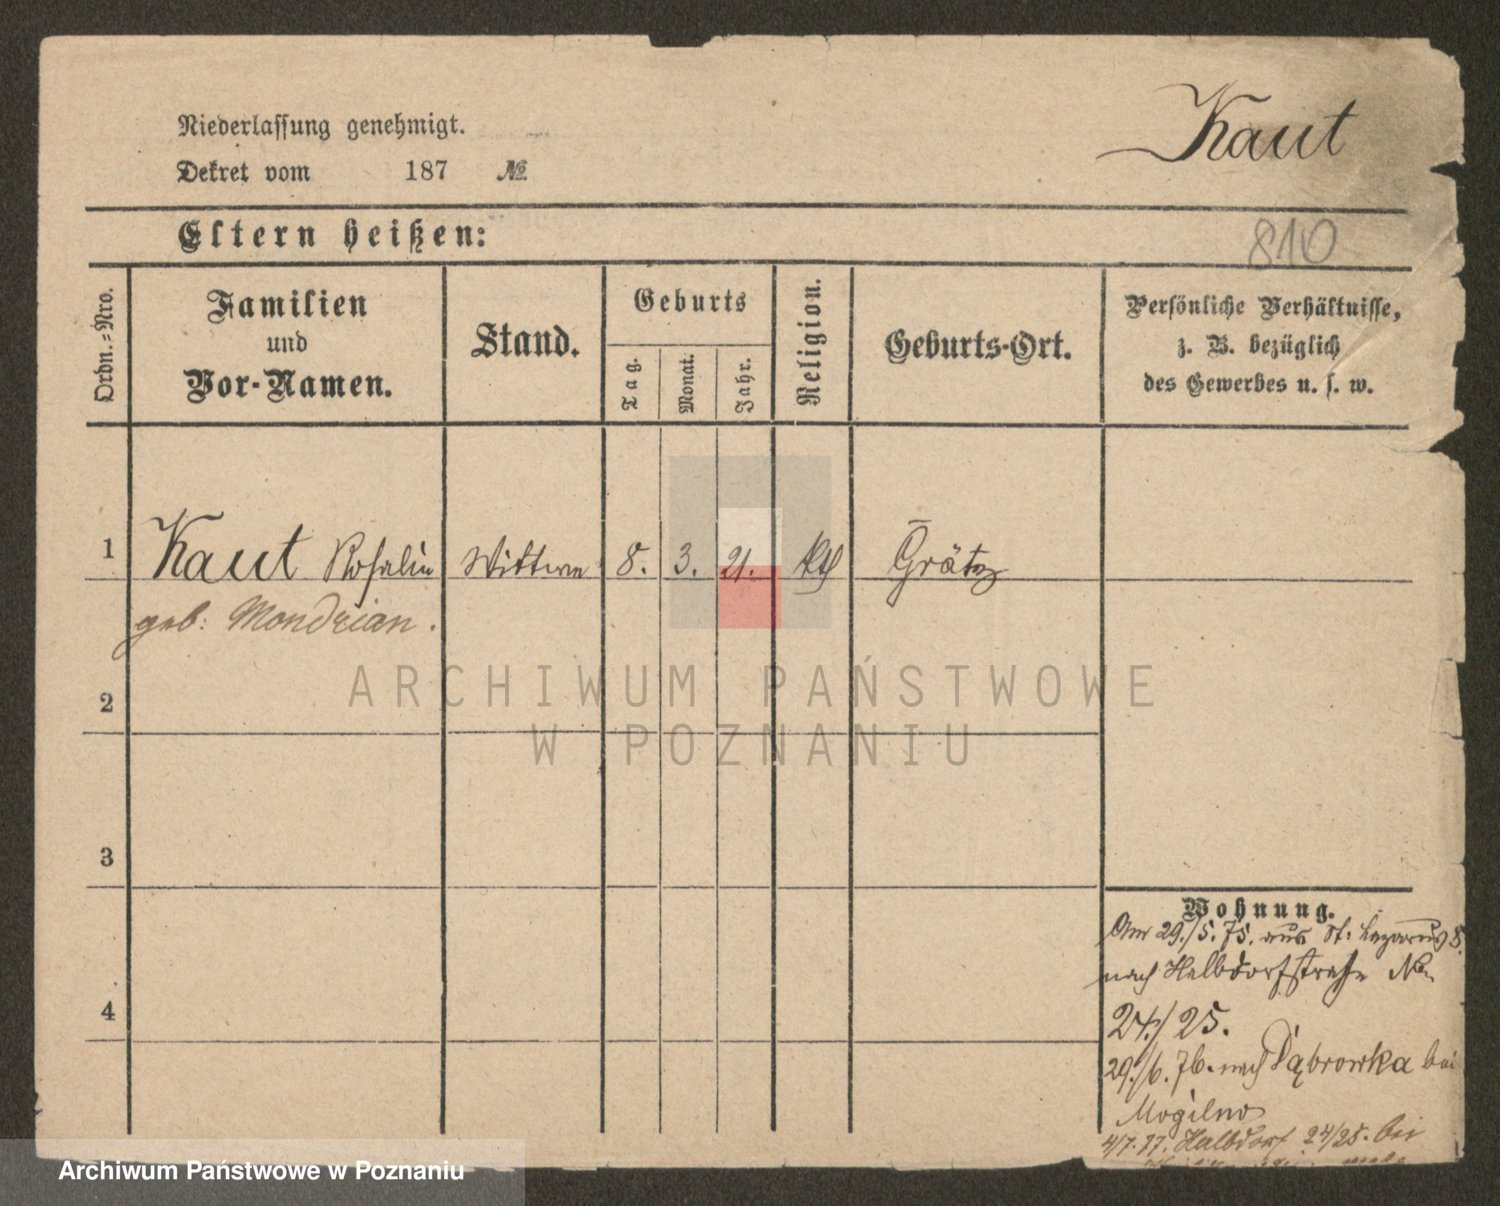 Kaut
Niederlassung genehmigt.
Dekret vom 187 №
810
Eltern heißen:
Ordn.-Nro.
Familien
und
Vor-Namen.
Stand.
Geburts
Tag.
Monat.
Jahr.
Religion.
Geburts-Ort.
Persönliche Verhältnisse,
z. B. bezüglich
des Gewerbes u. s. w.
1 Kaut Rosalie Wittwe 8. 3. 21. kth Grätz
geb: Mondrian.
2
3
4
Wohnung.
Am 29./5. 75. aus St: Lazarus 8.
nach Halbdorfstraße No
24/25.
29./6. 76. nach Dąbrowka bei
Mogilno
4/7. 77. Halbdorf 24/25. bei
ARCHIWUM PAŃSTWOWE
W POZNANIU
Archiwum Państwowe w Poznaniu